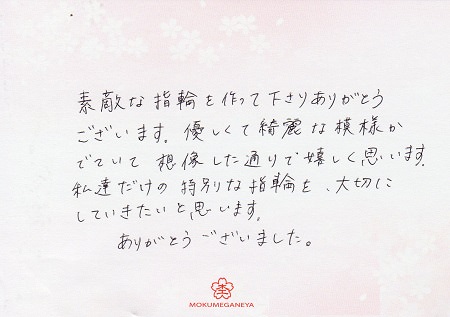 素敵な指輪を作って下さりありがとう
ございます。優しくて綺麗な模様が
でていて想像した通りで嬉しく思います。
私達だけの特別な指輪を、大切に
していきたいと思います。
ありがとうございました。
MOKUMEGANEYA